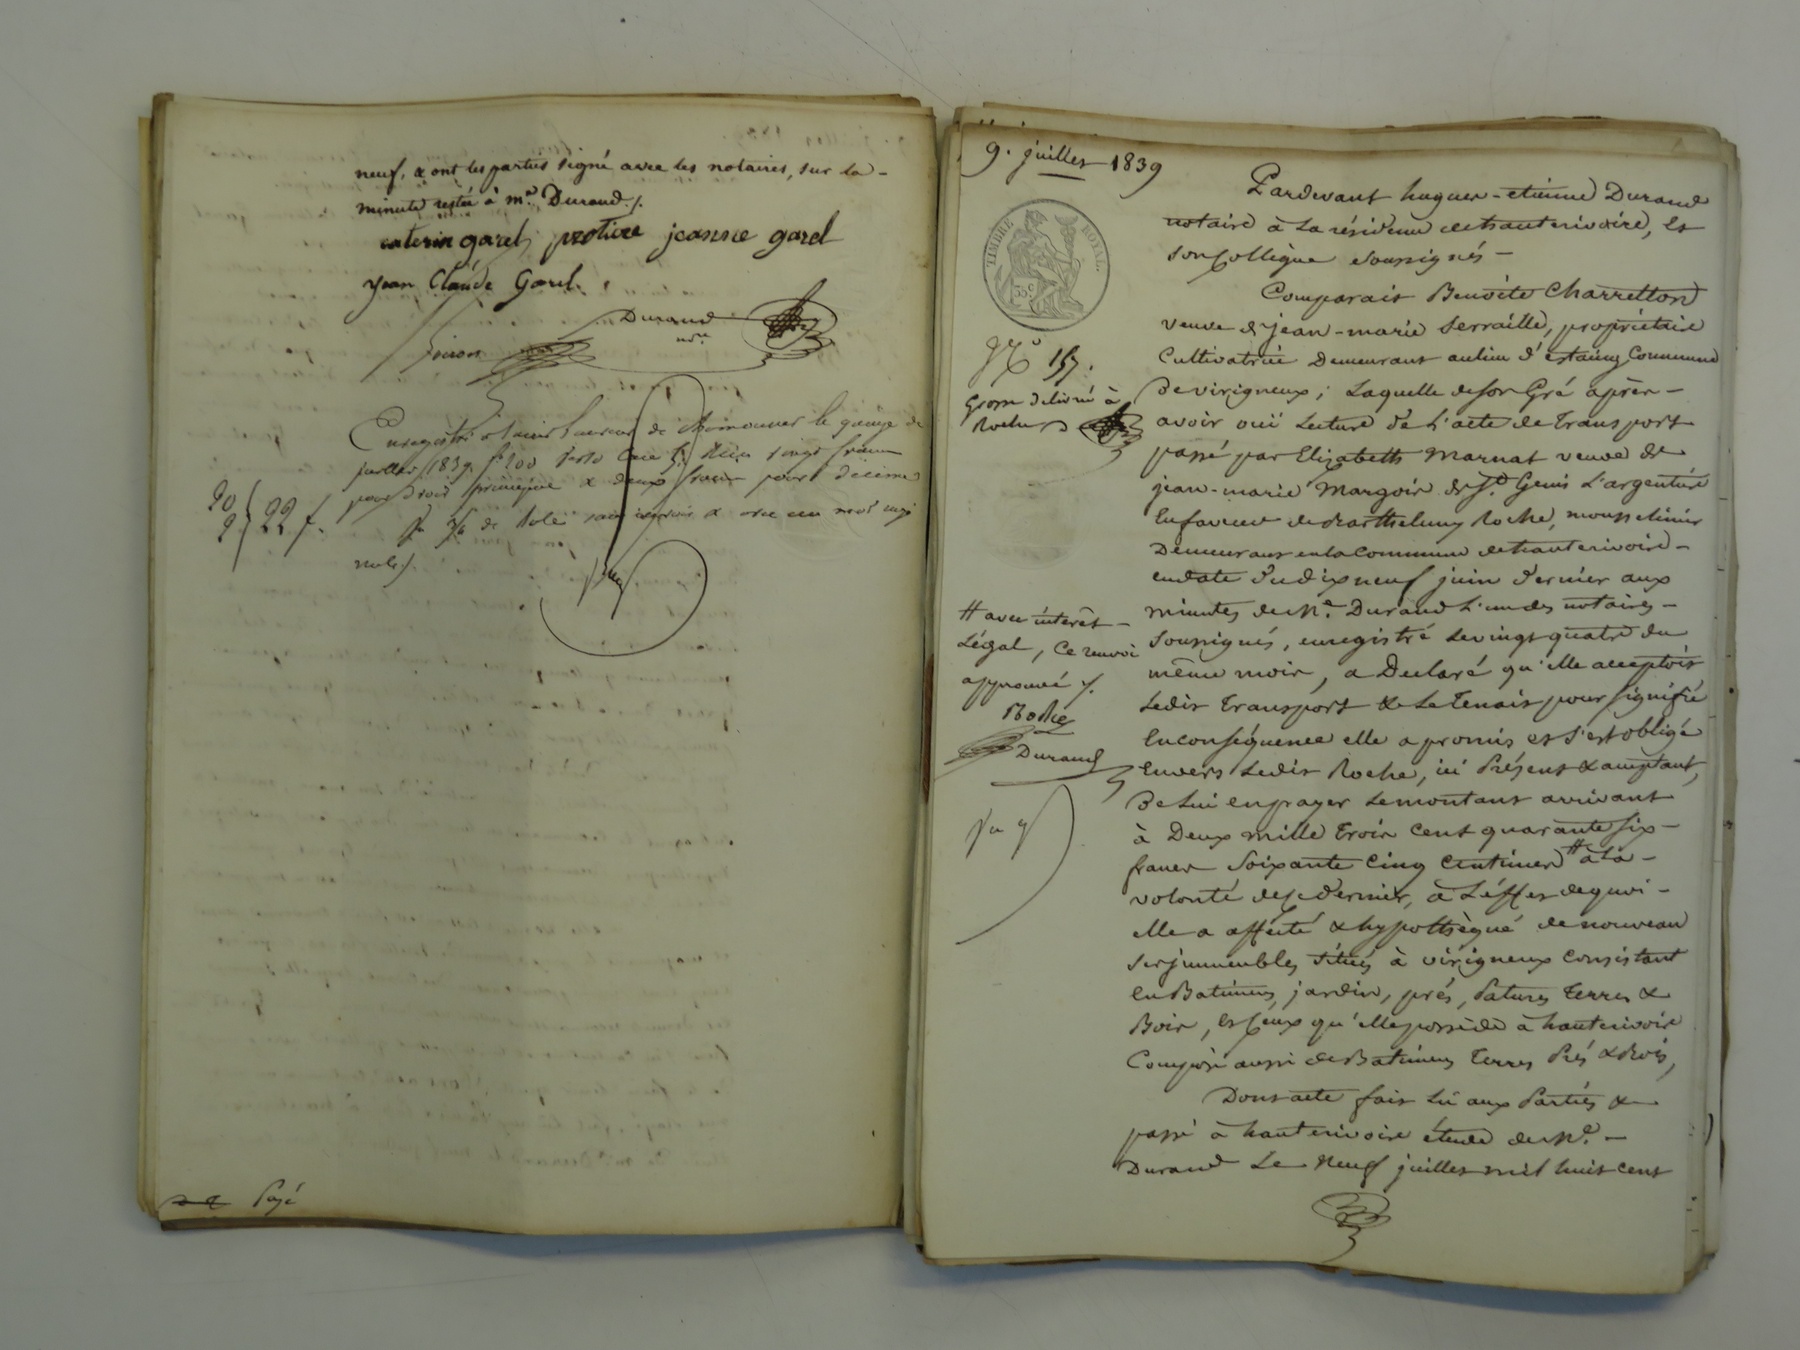 neuf, & ont les parties signé avec les notaires, sur la -
minute restée à me. Durand ./.
caterin garel jeanne garel
jean Claude Garel.
Durand
nre
Enregistré à Saint Laurent de Chamousset le quinze
juillet 1839. fo 200 Reçu vingt francs
pour droit principal & deux francs pour décime
20
2
22 f.
nuls ./.
Payé
9. juillet 1839
TIMBRE ROYAL.
35 c
No 157.
Grosse délivrée à
Roche
Pardevant hugues-etienne Durand
notaire à la résidence de hauterivoire, et
son collègue soussignés -
Comparait Benoite Charretton
veuve de jean-marie Serraille, propriétaire
Cultivatrice Demeurant au lieu d'estaing Commune
De virigneux; Laquelle de son Gré après -
avoir ouï Lecture de l'acte de transport
passé par Elizabeth Marnat veuve de
jean-marie Margoir de St. Genis L'argentière
En faveur de Barthelemy Roche, mousselinier
Demeurant en la Commune de hauterivoire -
en date du dix neuf juin dernier aux
minutes de Me. Durand L'un des notaires -
Soussignés, enregistré Le vingt quatre du
même mois, a Déclaré qu'elle acceptoit
Ledit transport & Le tenait pour signifié
En conséquence elle a promis et s'est obligé
Envers Ledit Roche, ici Présent & acceptant,
De Lui en payer Le montant arrivant
à Deux mille trois cent quarante six -
francs Soixante cinq centimes # à la -
volonté de ce dernier, à L'effet de quoi -
elle a affecté & hypothèqué de nouveau
ses immeubles situés à virigneux Consistant
En Batimens, jardin, prés, Patures, terres &
Bois, et Ceux qu'elle possède à hauterivoire
Composé aussi de Batimens Terres Prés & Bois,
Dont acte fait Lu aux Parties &
passé à hauterivoire étude de Me. -
Durand Le Neuf juillet mil huit cent
# avec intérêt -
Légal, Ce renvoi
approuvé ./.
Roche
Durand